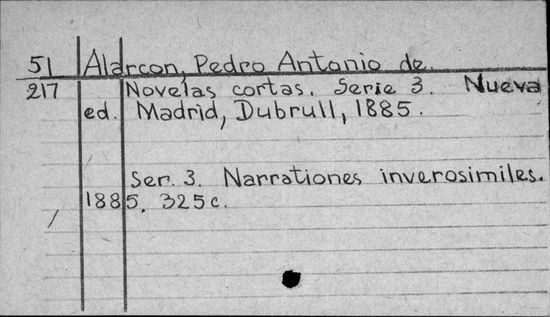 51 Alarcon, Pedro Antonio de.
217 Novelas cortas. Serie 3. Nueva
ed. Madrid, Dubrull, 1885.
Ser. 3. Narrationes inverosimiles.
1885. 325 c.
/